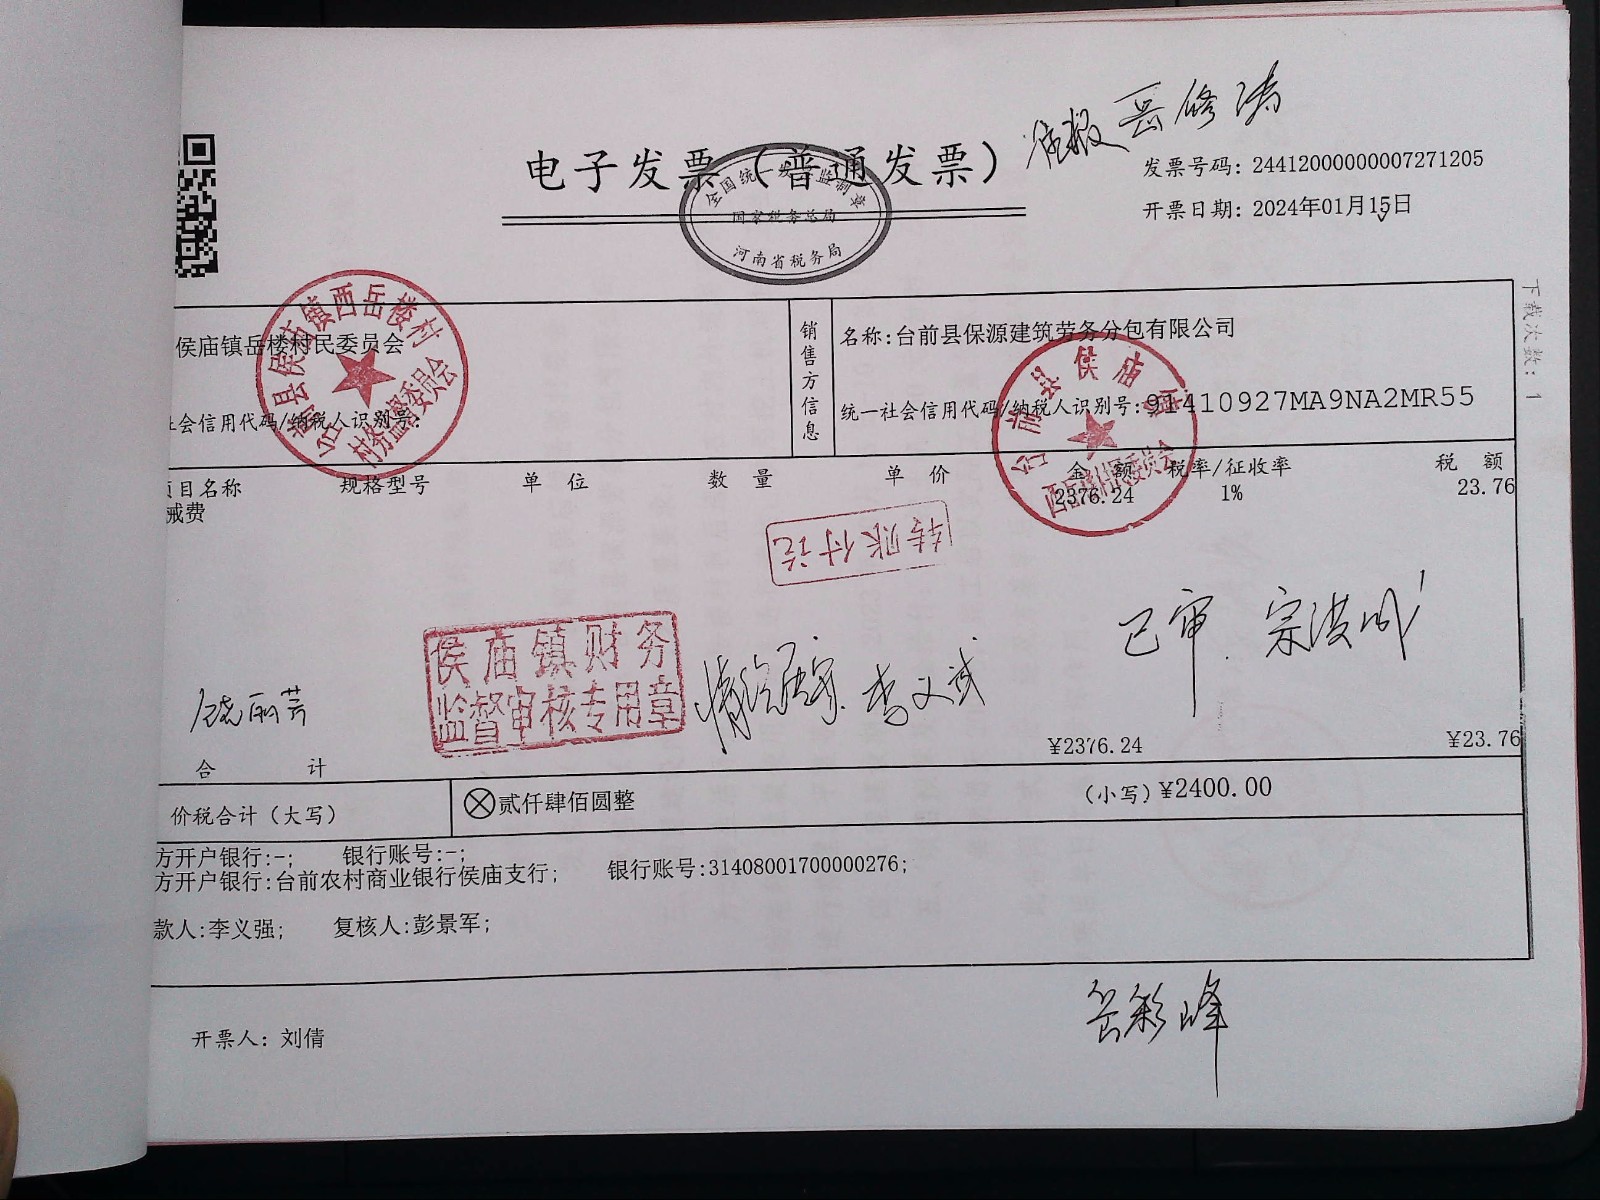 准报 岳修涛
电子发票（普通发票）
全国统一发票监制章
国家税务总局
河南省税务局
发票号码: 24412000000007271205
开票日期: 2024年01月15日
下载次数: 1
侯庙镇岳楼村民委员会
社会信用代码/纳税人识别号:
台前县侯庙镇西岳楼村
村务监督委员会
销售方信息
名称:台前县保源建筑劳务分包有限公司
统一社会信用代码/纳税人识别号:91410927MA9NA2MR55
台前县侯庙镇
西岳楼村村民委员会
项目名称 规格型号 单位 数量 单价 金额 税率/征收率 税额
械费 2376.24 1% 23.76
转账付讫
已审
侯庙镇财务
监督审核专用章
李义成
合计 ¥2376.24 ¥23.76
价税合计（大写） ⊗贰仟肆佰圆整 （小写）¥2400.00
方开户银行:-; 银行账号:-;
方开户银行:台前农村商业银行侯庙支行; 银行账号:31408001700000276;
款人:李义强; 复核人:彭景军;
开票人: 刘倩